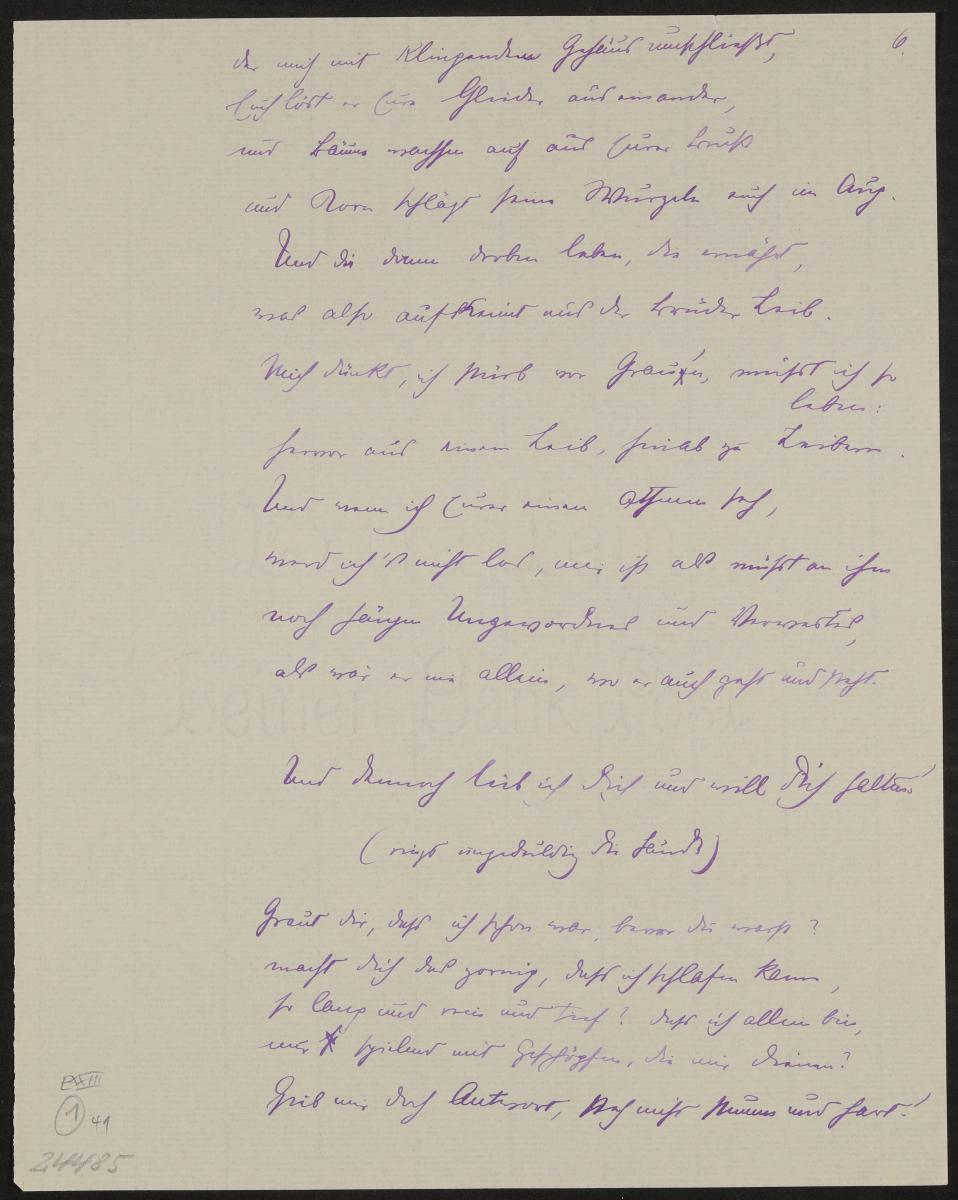 6.
der mich mit klingendem Gehäus umschließt,
Euch löst er Eure Glieder auseinander,
und Bäume wachsen auf aus Eurer Brust
und Korn schlägt seine Wurzeln euch im Aug.
Und die dann droben leben, die ernährt,
was also aufkeimt aus der Brüder Leib.
Mich dünkt, ich stürb vor Grau'n, müßt ich so
leben:
hervor aus einem Leib, hinab zu Leibern.
Und wenn ich Eurer einen athmen seh,
werd ich's nicht los, mir ist als müßt an ihm
noch hängen Ungewordnes und Verwestes,
als wär er nie allein, wo er auch geht und steht.
Und dennoch lieb ich Dich und will Dich halten!
(ringt ungeduldig die Hände)
Graut dir, daß ich schon war, bevor du warst?
macht dich das zornig, daß ich schlafen kann,
so lang und rein und tief? daß ich allein bin,
nur spielend mit Geschöpfen, die mir dienen?
Gieb mir doch Antwort, steh nicht stumm und hart!
1 41
24485